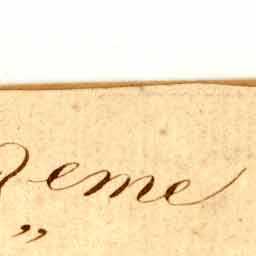 eme
„